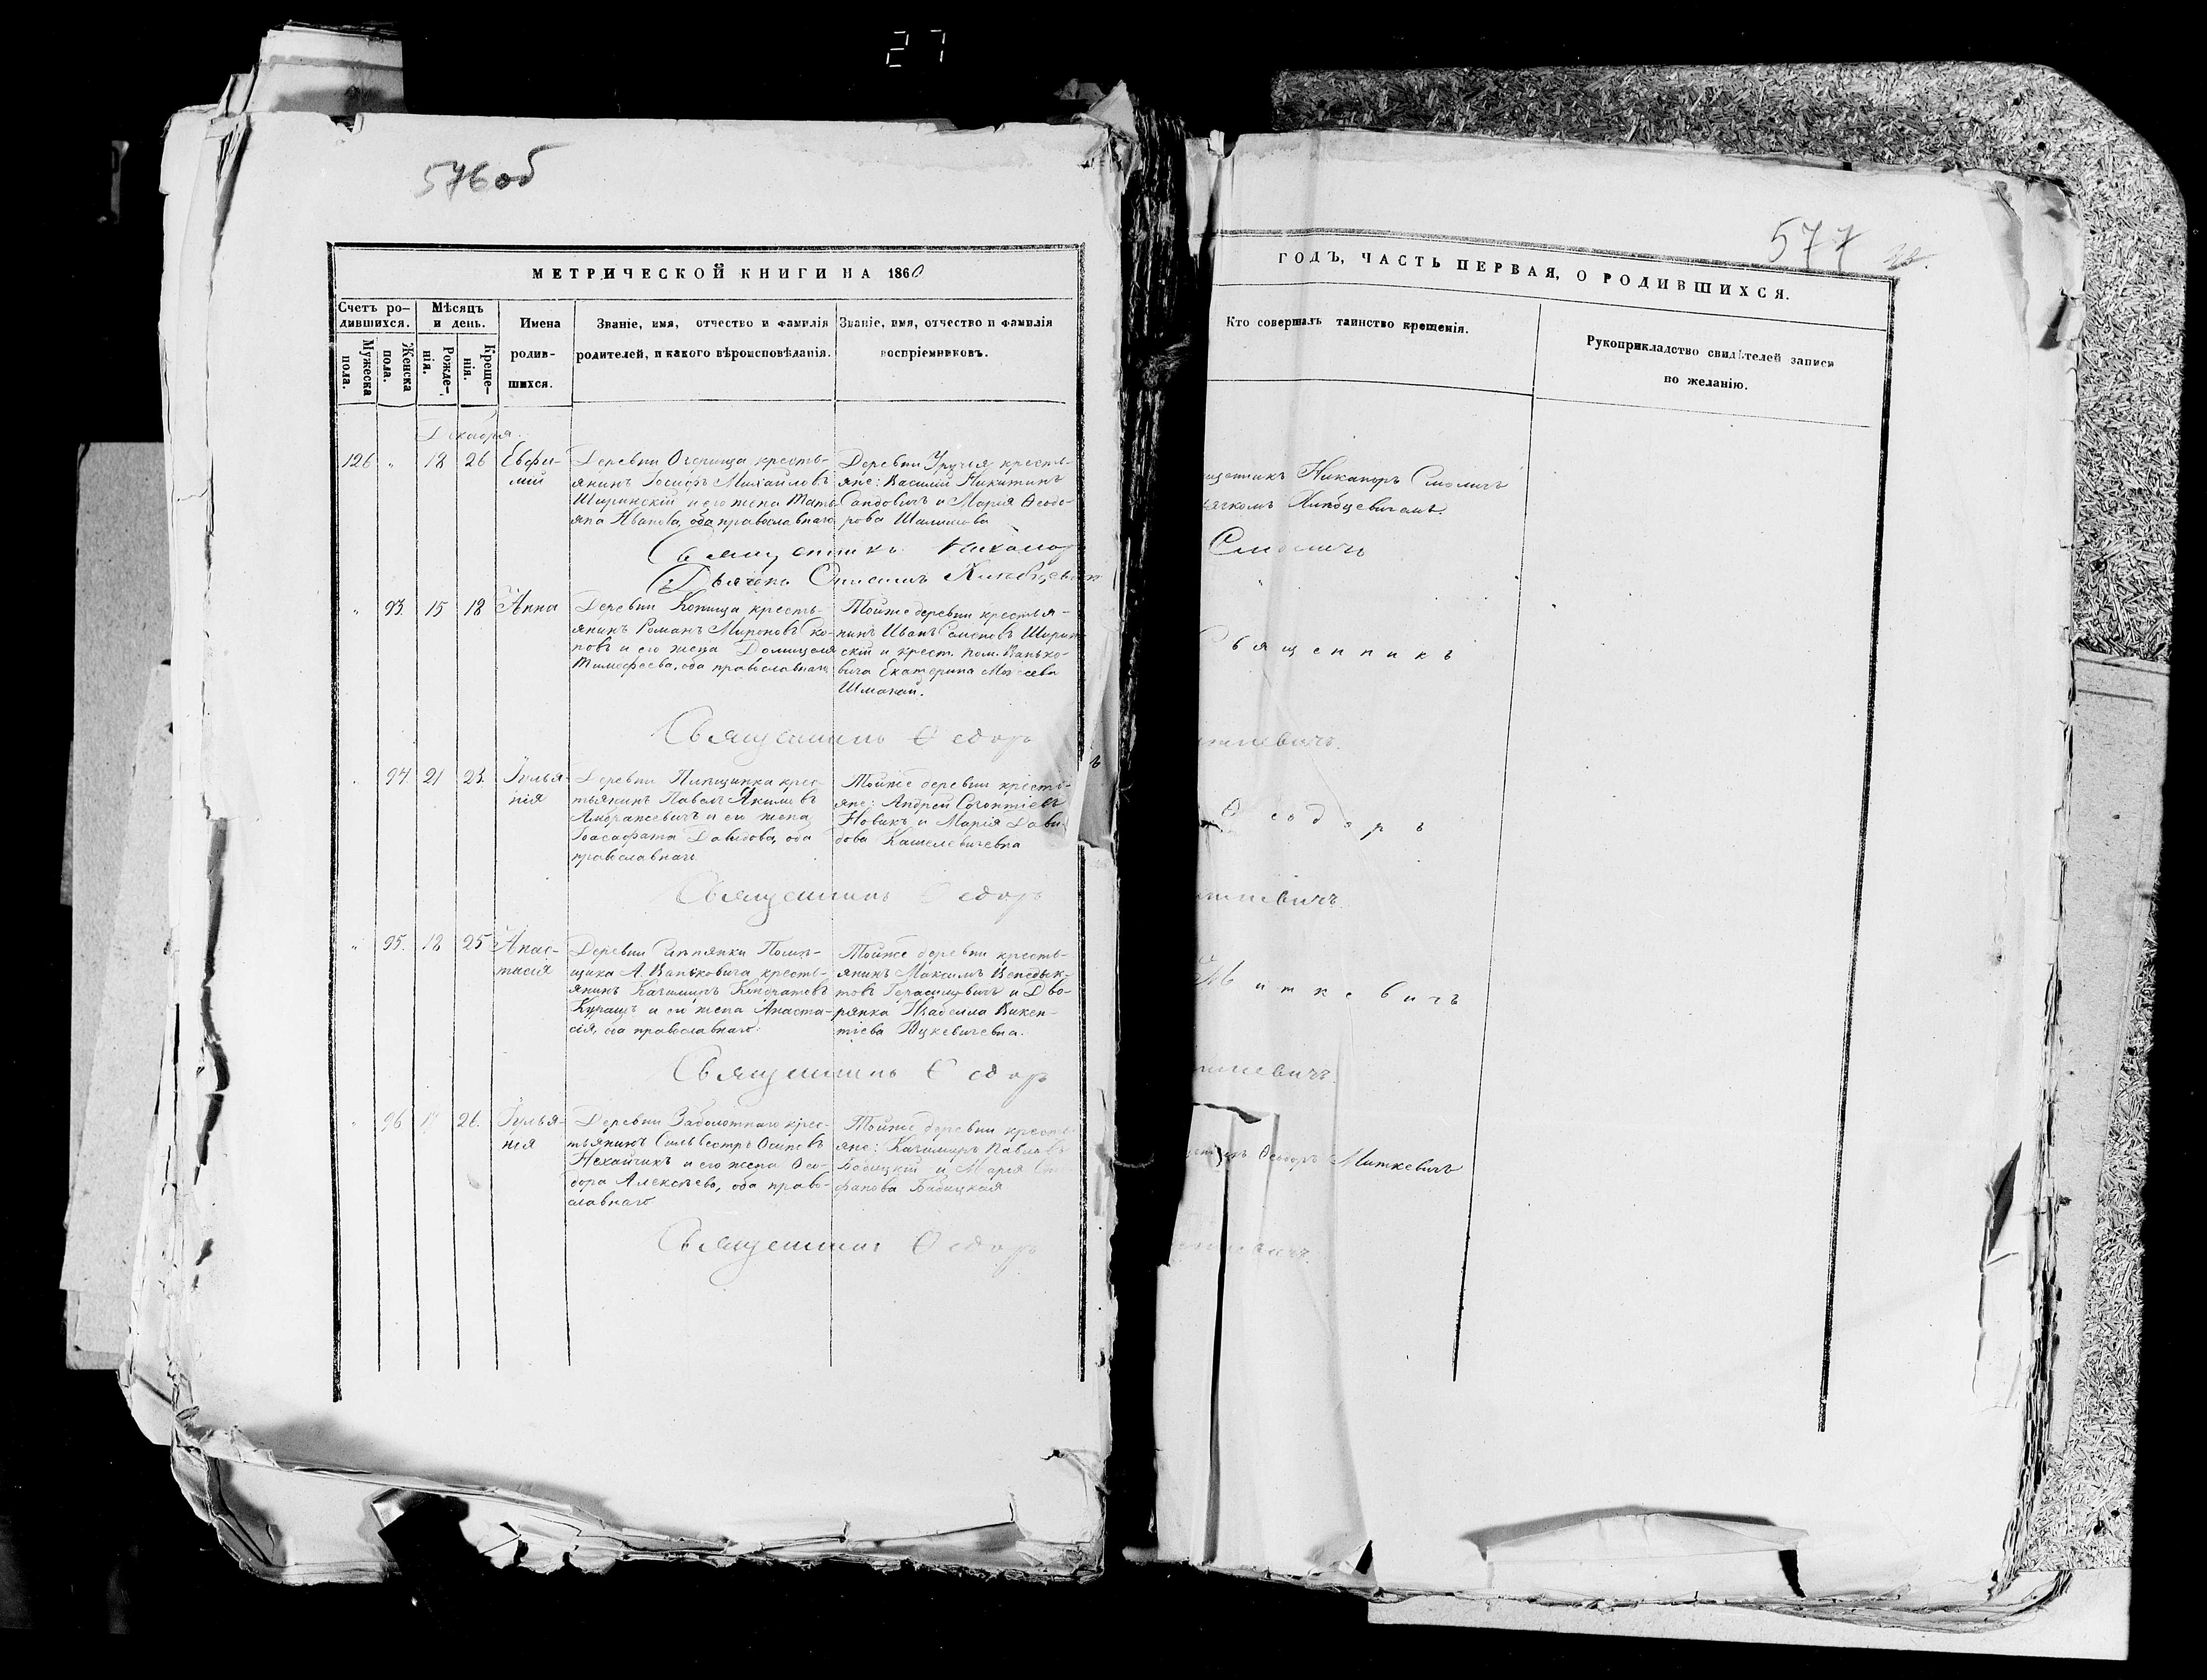 27
576 об
577
МЕТРИЧЕСКОЙ КНИГИ НА 1860
ГОДЪ, ЧАСТЬ ПЕРВАЯ, О РОДИВШИХСЯ.
Счетъ ро-
дившихся.
Мужеска
пола.
Женска
пола.
Мѣсяцъ
и день.
Рожде-
нія.
Креще-
нія.
Имена
родив-
шихся.
Званіе, имя, отчество и фамилія
родителей, и какого вѣроисповѣданія.
Званіе, имя, отчество и фамилія
воспріемниковъ.
Кто совершалъ таинство крещенія.
Рукоприкладство свидѣтелей записи
по желанію.
Декабря.
126 " 18 26 Евфи-
мій
Деревни кресть-
янинъ Іосифъ Михайловъ
Ширинскій и его жена Тать-
яна Иванова, оба православнаго
Деревни Уручья кресть-
яне: Василій Никитинъ
и Марія Ѳеодо-
рова
Никаноръ Смоличъ
Священникъ Никаноръ
Смоличъ
Дьячекъ
" 93. 15 18 Анна
Деревни Копища кресть-
янинъ Романъ Мироновъ Ко-
новъ и его жена
Тимофеева, оба православнаго
Тойже деревни крестья-
нинъ Иванъ Семеновъ Ширин
скій и крест. пом. Ванько-
вича Екатерина
Священникъ
Священникъ Ѳедоръ
" 94. 21 23. Іулья-
нія
Деревни крес-
тьянинъ Павелъ Акимовъ
и его жена
Іоасафата Давидова, оба
православнаго.
Тойже деревни кресть-
яне: Андрей
Новикъ и Марія Дави-
дова
Ѳеодоръ
Священникъ Ѳедоръ
" 95. 18 25 Анас-
тасія
Деревни Слѣпянки Помѣ-
щика А. Ваньковича кресть-
янинъ Казимиръ
и его жена Анаста-
сія, оба православнаго.
Тойже деревни кресть-
янинъ Максимъ Венедык-
товъ Герасимовичъ и Дво-
рянка Изабелла Викен-
тіева Юцкевичевна.
Миткевичъ
Священникъ Ѳедоръ
" 96 26. Іулья-
нія
Деревни Заболотнаго крес-
тьянинъ Сильвестръ Осиповъ
Нехайчикъ и его жена Ѳео-
дора Алексѣева, оба право-
славнаго
Тойже деревни кресть-
яне: Казимиръ Павловъ
Бабицкій и Марія Сте-
фанова Бабицкая
Ѳеодоръ Миткевичъ
Священникъ Ѳедоръ